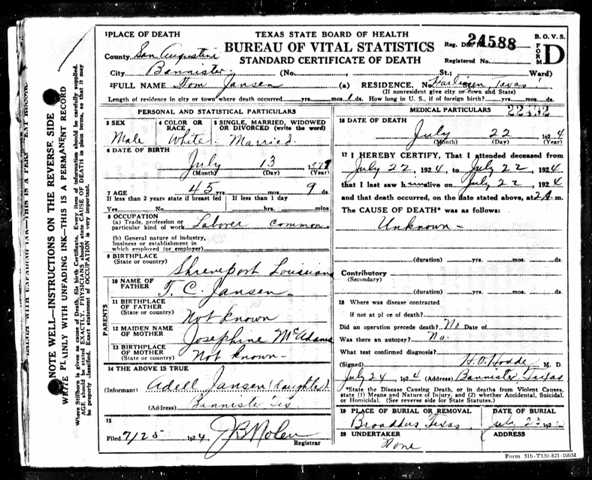 PLACE OF DEATH
TEXAS STATE BOARD OF HEALTH
B. O. V. S.
BUREAU OF VITAL STATISTICS
24588
STANDARD CERTIFICATE OF DEATH
FORM D
County San Augustine
Reg. Dis.
City Bannister (No. St.; Ward)
Registered No.
FULL NAME Tom Jansen (a) RESIDENCE, No. Harlingen Texas
(If nonresident give city or town and State)
Length of residence in city or town where death occurred yrs. mos. ds. How long in U. S., if of foreign birth? yrs. mos. ds.
PERSONAL AND STATISTICAL PARTICULARS
3 SEX
4 COLOR OR RACE
5 SINGLE, MARRIED, WIDOWED OR DIVORCED (write the word)
Male White Married
6 DATE OF BIRTH
July 13
(Month) (Day) (Year)
7 AGE
45 yrs. mos. 9 ds.
If less than 2 years state if breast fed
If less than 1 day
Yes No hrs. mins
8 OCCUPATION
(a) Trade, profession or particular kind of work Laborer common
(b) General nature of industry, business or establishment in which employed (or employer)
9 BIRTHPLACE
(State or country) Shreveport Louisiana
PARENTS
10 NAME OF FATHER T. C. Jansen
11 BIRTHPLACE OF FATHER
(State or country) Not known
12 MAIDEN NAME OF MOTHER Josephine McAdams
13 BIRTHPLACE OF MOTHER
(State or country) Not known
14 THE ABOVE IS TRUE
(Informant) Adell Jansen (daughter)
(Address) Bannister Tex
15
Filed 7/25 1924 J B Nolen
Registrar
MEDICAL PARTICULARS
16 DATE OF DEATH
July 22 1924
(Month) (Day) (Year)
17 I HEREBY CERTIFY, That I attended deceased from
July 22 1924 to July 22 1924
that I last saw h alive on July 22 1924
and that death occurred, on the date stated above, at 2 m.
THE CAUSE OF DEATH* was as follows:
Unknown
(duration) yrs. mos. ds.
Contributory
(Secondary)
(duration) yrs. mos. ds.
18 Where was disease contracted
if not at place of death?
Did an operation precede death? No Date of
Was there an autopsy? No
What test confirmed diagnosis?
M. D.
July 24 1924 (Address) Bannister Texas
*State the Disease Causing Death, or in deaths from Violent Causes, state (1) Means and Nature of Injury, and (2) whether Accidental, Suicidal, or Homicidal. (See reverse side for further statement.)
19 PLACE OF BURIAL OR REMOVAL
DATE
Broaddus Texas
20 UNDERTAKER
ADDRESS
None
NOTE WELL—INSTRUCTIONS ON THE REVERSE SIDE
WRITE PLAINLY WITH UNFADING INK—THIS IS A PERMANENT RECORD